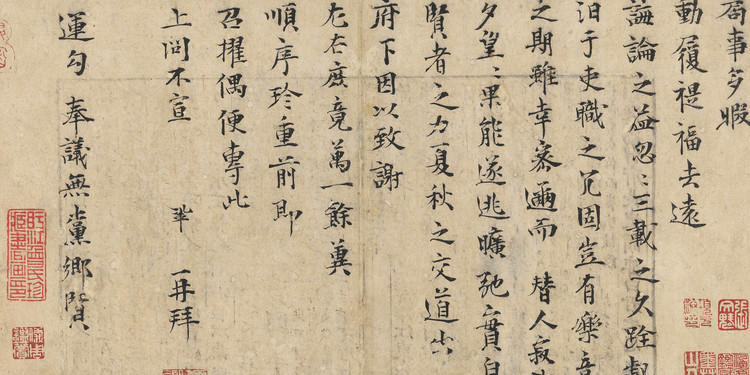 局事多暇
動履褆福去遠
誨論之益忽〻三載之久跧
汩于吏職之冗固豈有樂
之期雖幸密邇而 替人寂
夕望〻果能遂逃曠弛實自
賢者之力夏秋之交道出
府下因以致謝
左右庶竟萬一餘冀
順序珍重前即
召擢偶便專此
上問不宣 鞏 再拜
運勾 奉議無黨鄉賢